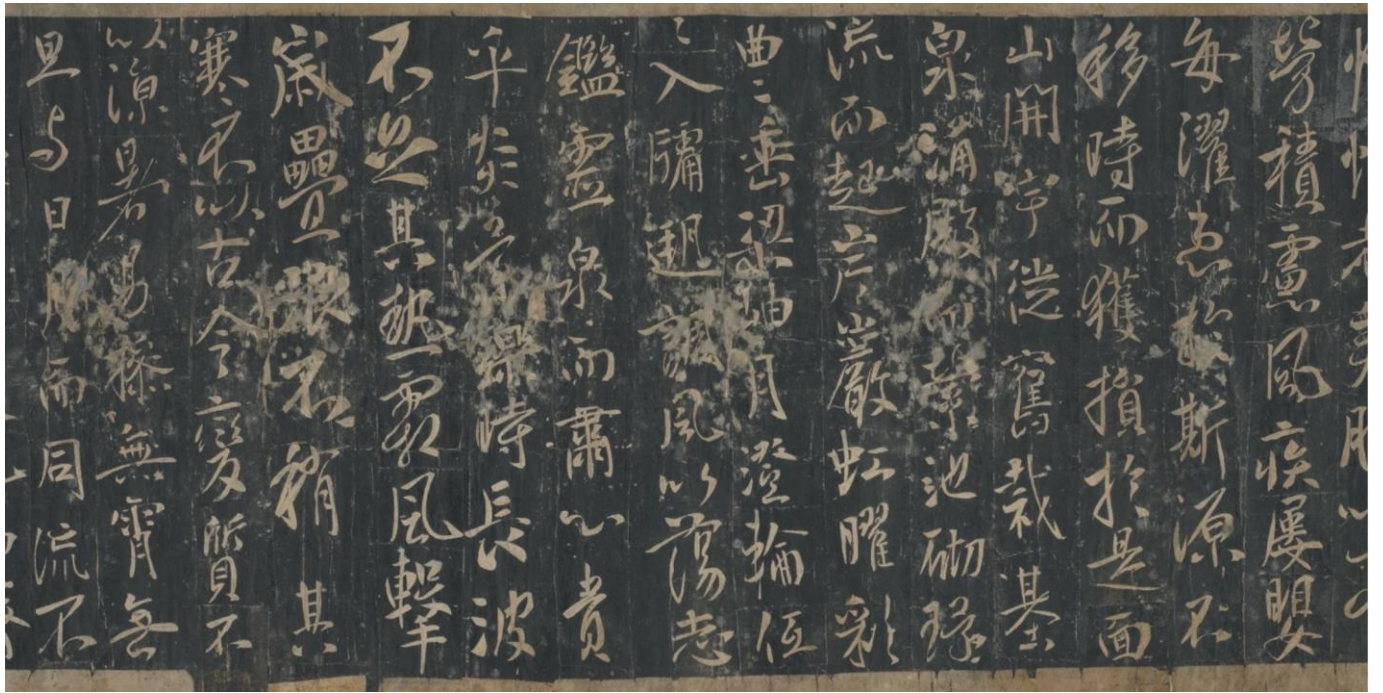 勞積慮風疾屢嬰
每濯患於斯源不
移時而獲損於是面
山開宇從舊裁基
泉涌殿而縈池砌環
流而起岸巖虹曜彩
曲〻垂梁岫月澄輪低
〻入牖風以蕩志
鑑靈泉而肅心
時長波
不息其熱風擊
歲疊浪不稍其
寒不以古今變質不
以涼暑易操無霄無
旦与日月而同流不